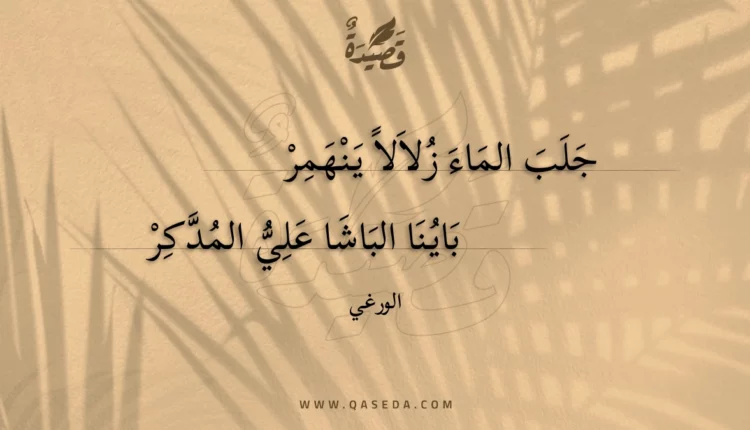 قَصِيْدَةٌ
جَلَبَ المَاءَ زُلاَلاً يَنْهَمِرْ
بَايُنَا البَاشَا عَلِيُّ المُدَّكِرْ
الورغي
WWW.QASEDA.COM